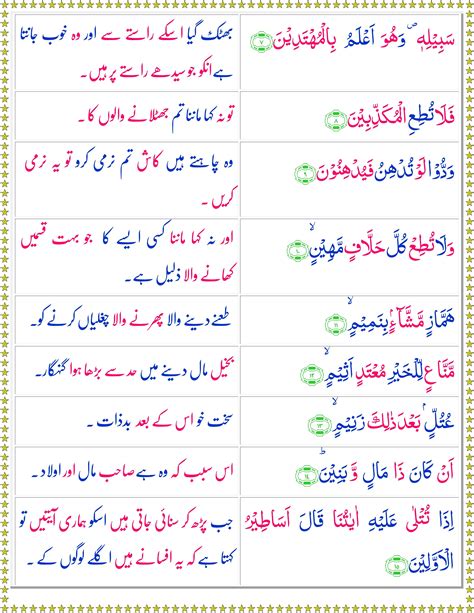 سَبِيْلِهٖ ۪ وَهُوَ اَعْلَمُ بِالْمُهْتَدِيْنَ ﴿۷﴾
بھٹک گیا اسکے راستے سے اور وہ خوب جانتا
ہےانکو جوسیدھے راستے پر ہیں۔
فَلَا تُطِعِ الْمُكَذِّبِيْنَ ﴿۸﴾
تو نہ کہا ماننا تم جھٹلانے والوں کا ۔
وَدُّوْا لَوْ تُدْهِنُ فَيُدْهِنُوْنَ ﴿۹﴾
وہ چاہتے ہیں کاش تم نرمی کرو تو یہ نرمی
کریں ۔
وَلَا تُطِعْ كُلَّ حَلَّافٍ مَّهِيْنٍ ۙ﴿۱۰﴾
اور نہ کہا ماننا کسی ایسے کا جو بہت قسمیں
کھانے والا ذلیل ہے۔
هَمَّازٍ مَّشَّآءٍۢ بِنَمِيْمٍ ۙ﴿۱۱﴾
طعنے دینے والا پھرنے والا چغلیاں کرنے کو۔
مَّنَّاعٍ لِّلْخَيْرِ مُعْتَدٍ اَثِيْمٍ ۙ﴿۱۲﴾
بخیل مال دینے میں حد سے بڑھا ہوا گنہگار۔
عُتُلٍّۢ بَعْدَ ذٰلِكَ زَنِيْمٍ ۙ﴿۱۳﴾
سخت خو اس کے بعد بدذات ۔
اَنْ كَانَ ذَا مَالٍ وَّ بَنِيْنَ ؕ﴿۱۴﴾
اس سبب کہ وہ ہے صاحب مال اور اولاد ۔
اِذَا تُتْلٰى عَلَيْهِ اٰيٰتُنَا قَالَ اَسَاطِيْرُ
الْاَوَّلِيْنَ ﴿۱۵﴾
جب پڑھ کر سنائی جاتی ہیں اسکو ہماری آیتیں تو
کہتا ہے کہ یہ افسانے ہیں اگلے لوگوں کے ۔